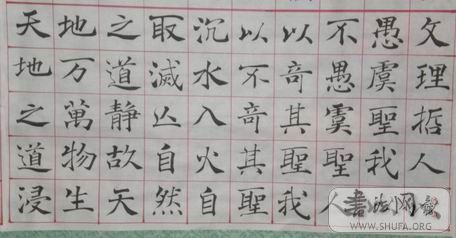 文理哲人
愚虞聖我
不愚虞聖人
以奇其聖我
以不奇其聖
沉水入火自
取滅亾自然
之道靜故天
地万萬物生
天地之道浸
書法网
WWW.SHUFA.ORG